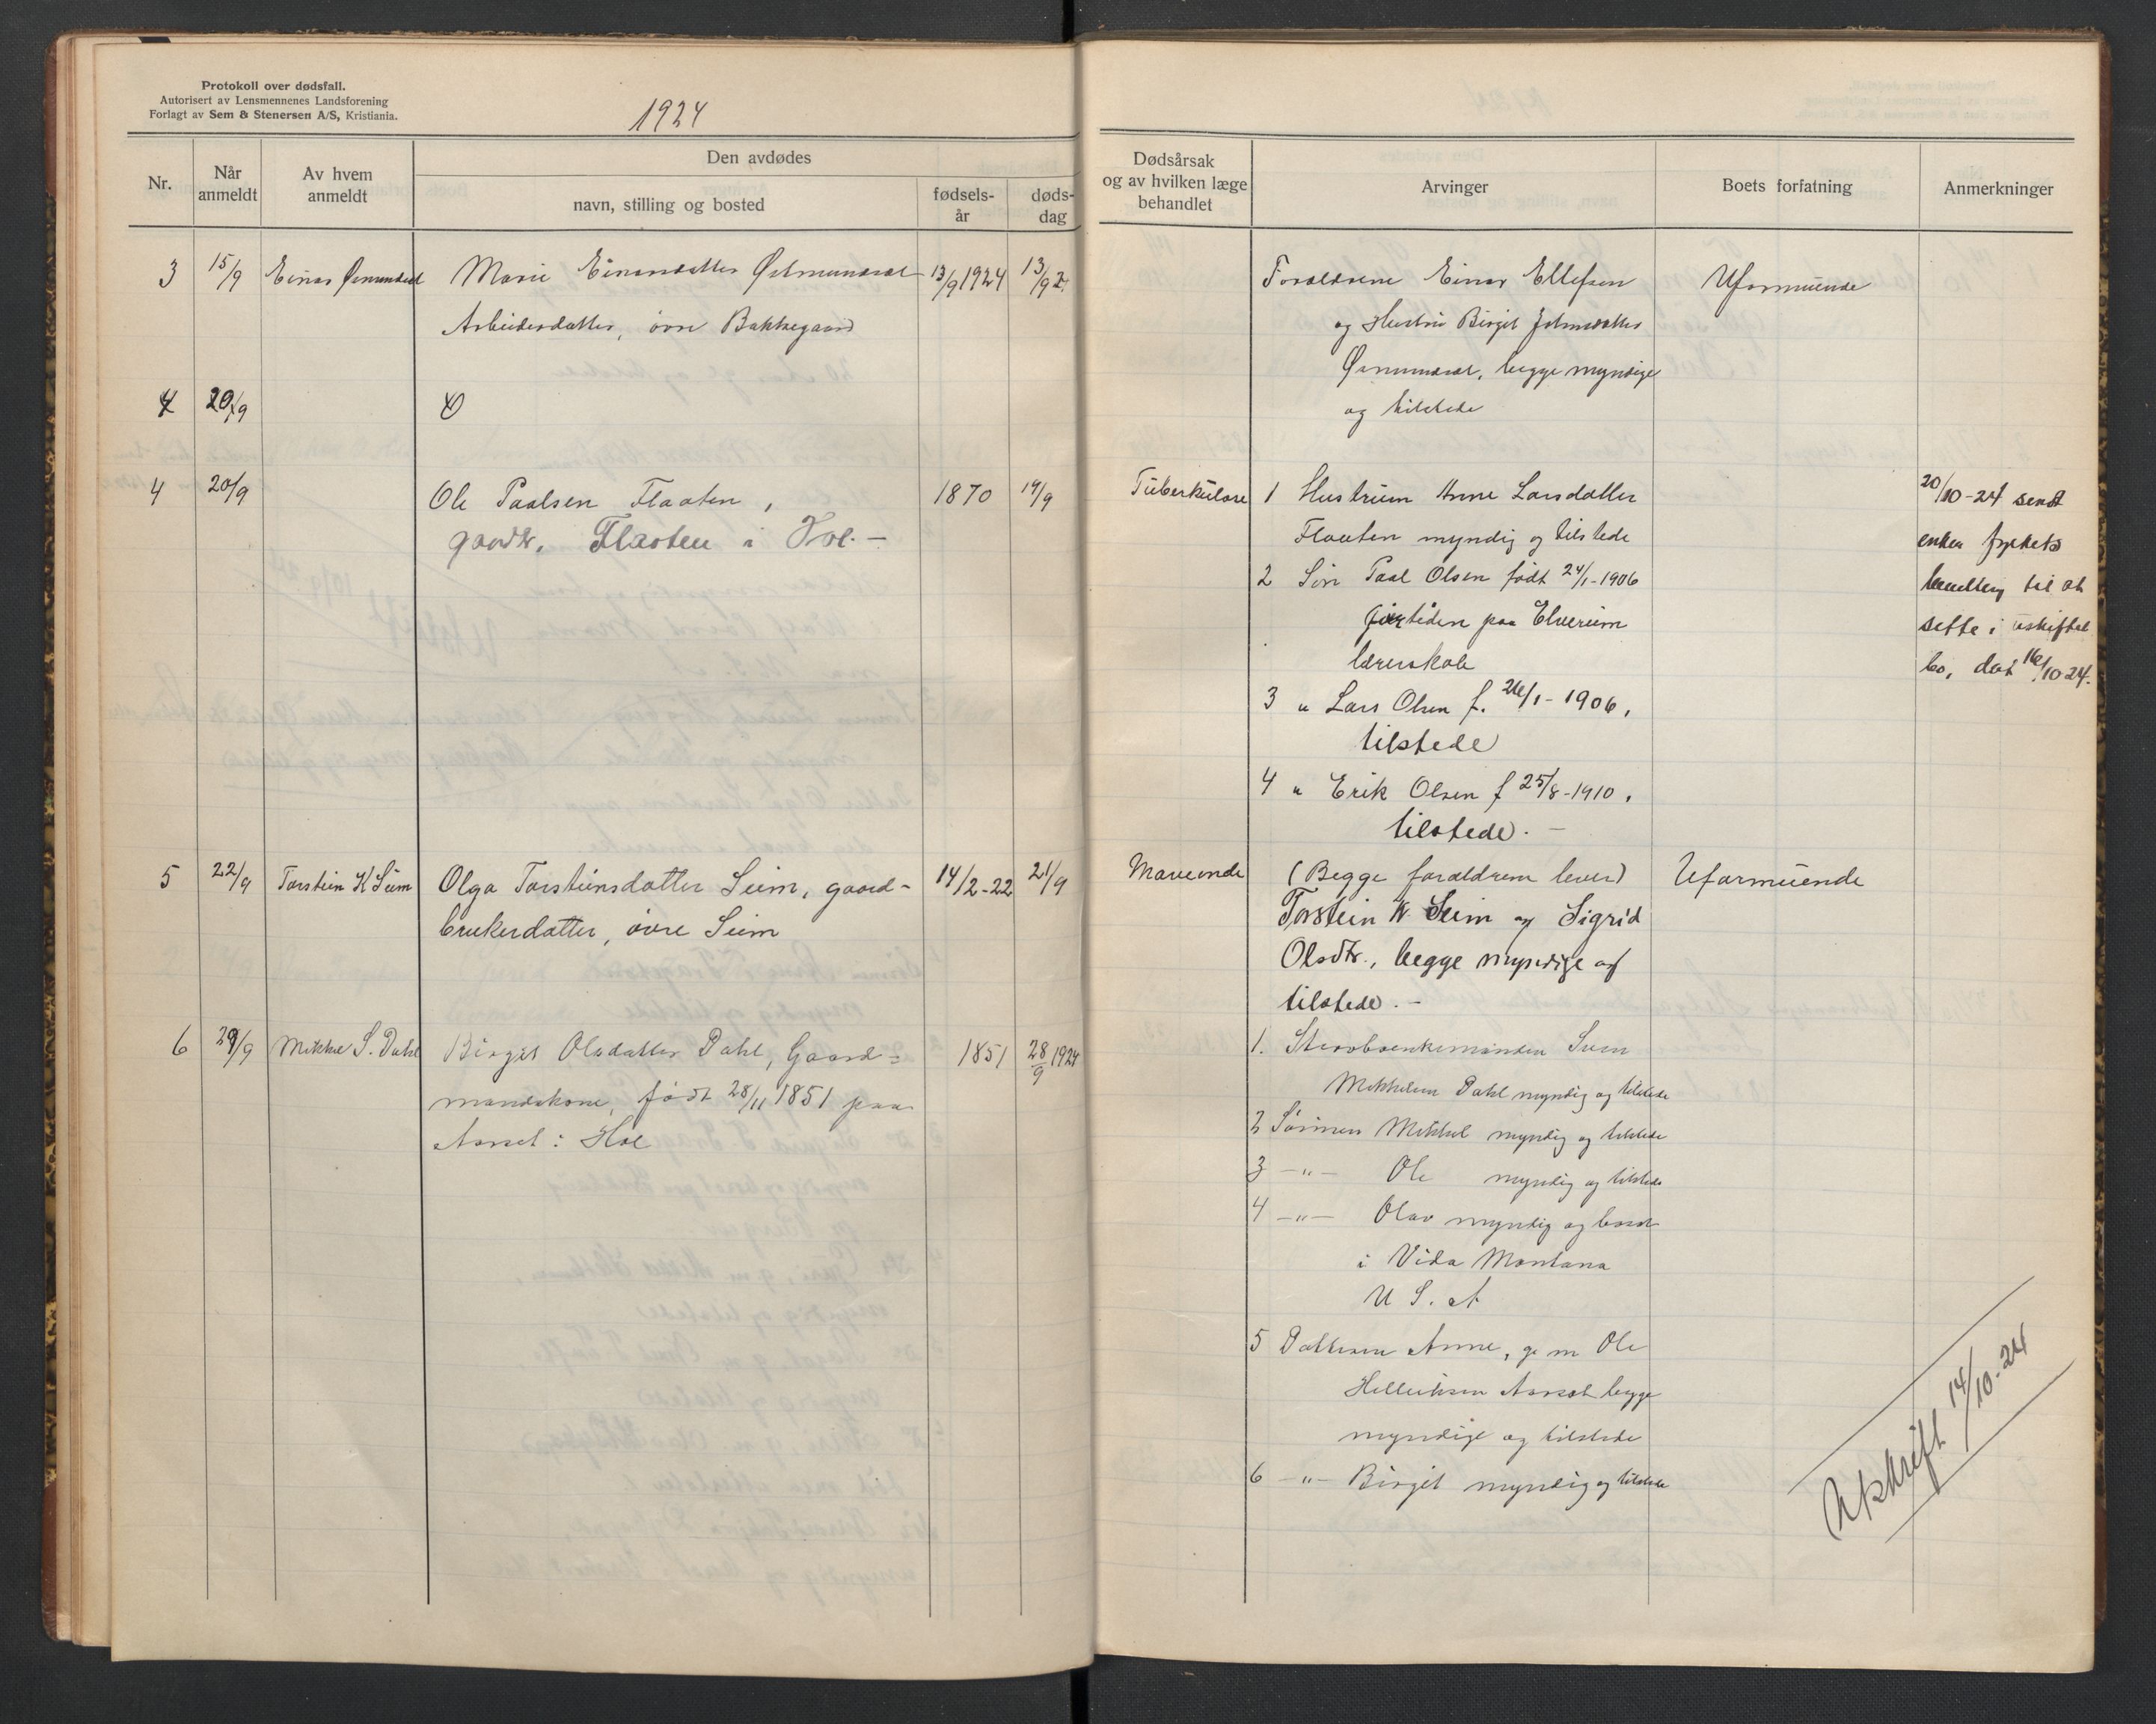 Protokoll over dødsfall.
Autorisert av Lensmennenes Landsforening
Forlagt av Sem & Stenersen A/S, Kristiania.
1924
Nr.
Når
anmeldt
Av hvem
anmeldt
Den avdødes
navn, stilling og bosted
fødsels-
år
døds-
dag
Dødsårsak
og av hvilken læge
behandlet
Arvinger
Boets forfatning
Anmerkninger
3 15/9 Einar
Marie Einarsdatter 13/9 1924 13/9
Arbeidersdatter, övre Bakkegaard
Forældrene Einar Ellefsen
og Hustru Birgit
begge myndige
og tilstede
Uformuende
4 20/9
4 20/9
Ole Paalsen Flaaten, 1870 19/9
gaardbr. Flaaten i Hol. -
Tuberkulose
1 Hustruen Anne Larsdatter
Flaaten myndig og tilstede
2 Sön Paal Olsen født 24/1-1906
for tiden paa Elverum
lærerskole
3 " Lars Olsen f. 26/1-1906,
tilstede
4 " Erik Olsen f 25/8-1910,
tilstede. -
20/10-24 sendt
enken fylkets
til at
sitte i uskiftet
bo, dat 16/10 24.
5 22/9 Torstein K Seim
Olga Torsteinsdatter Seim, gaard- 14/2-22 21/9
brukerdatter, övre Seim
Maveonde
(Begge forældrene lever)
Torstein K. Seim og Sigrid
Olsdtr., begge myndige og
tilstede. -
Uformuende
6 29/9 Mikkel S. Dahl
Birgit Olsdatter Dahl, Gaard= 1851 28/9 1924
mandskone, født 28/11 1851 paa
i Hol
1. Svein
Mikkelsen Dahl myndig og tilstede
2 Sönnen Mikkel myndig og tilstede
3 -"- Ole myndig og tilstede
4 -"- Olav myndig og bosat
i Vida Montana
U S. A
5 Datteren Anne, g. m Ole
begge
myndige og tilstede
6 -"- Birgit myndig og tilstede
Utskrift 14/10-24